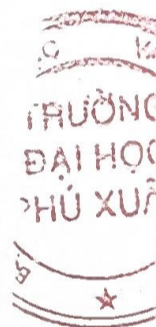 TRƯỜNG
ĐẠI HỌC
PHÚ XUÂ